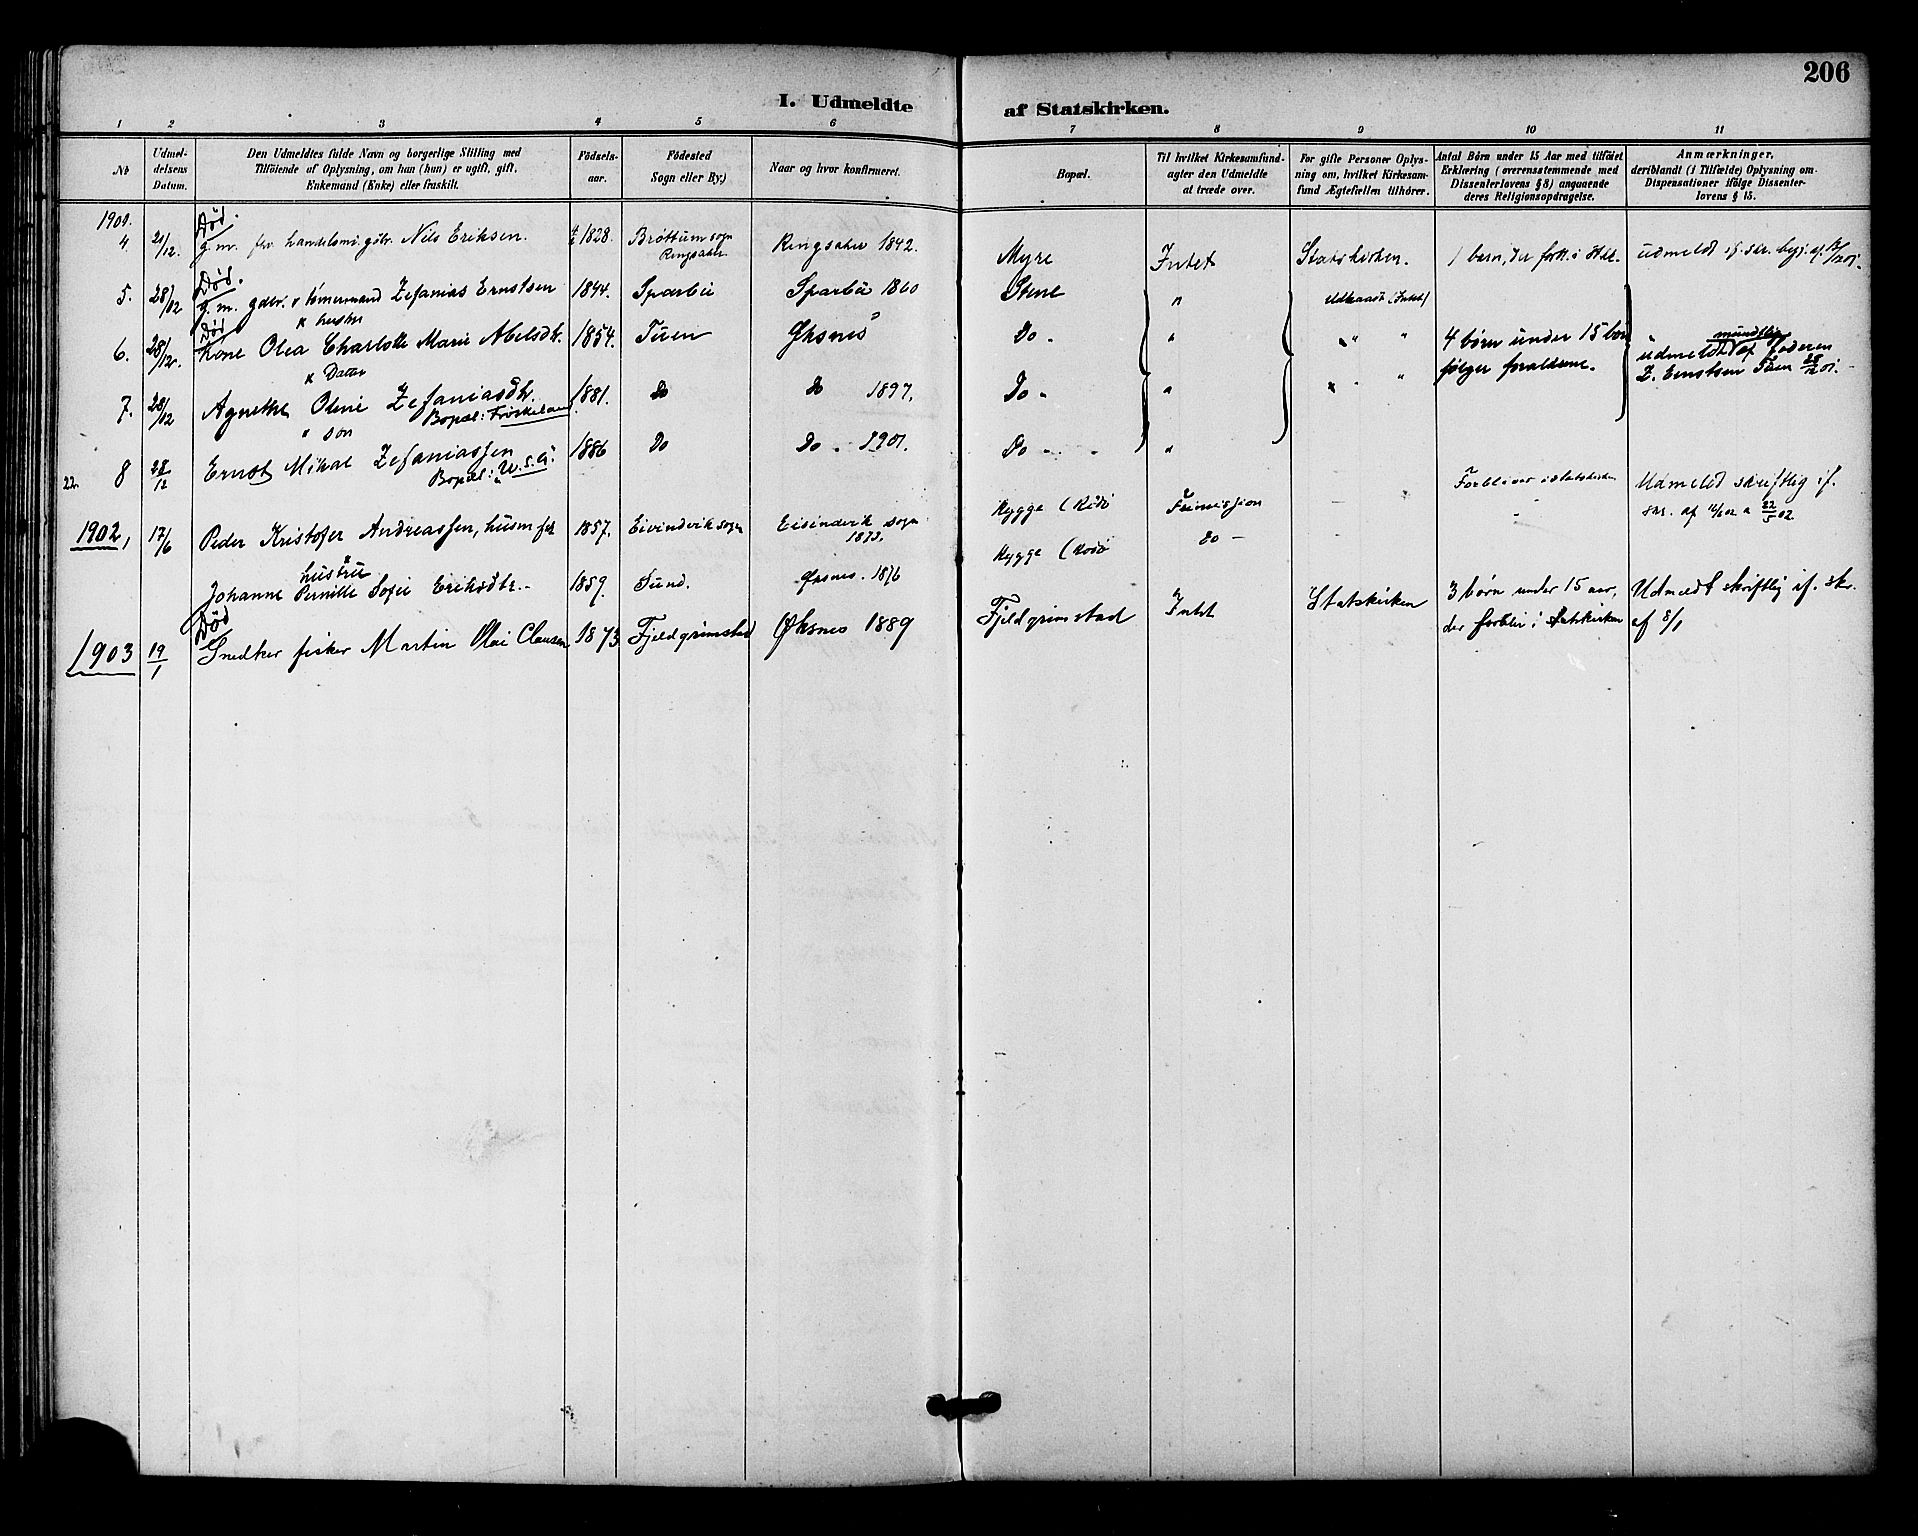 206
I. Udmeldte af Statskirken.
1 2 3 4 5 6 7 8 9 10 11
No
Udmel-
delsens
Datum.
Den Udmeldtes fulde Navn og borgerlige Stilling med
Tilföiende af Oplysning, om han (hun) er ugift, gift,
Enkemand (Enke) eller fraskilt.
Födsels-
aar.
Födested
Sogn eller By.)
Naar og hvor konfirmeret.
Bopæl.
Til hvilket Kirkesamfund
agter den Udmeldte
at træde over.
For gifte Personer Oplys-
ning om, hvilket Kirkesam-
fund Ægtefællen tilhörer.
Antal Börn under 15 Aar med tilföiet
Erklæring (overensstemmende med
Dissenterlovens § 8) angaaende
deres Religionsopdragelse.
Anmærkninger,
deriblandt (i Tilfælde) Oplysning om
Dispensationer ifölge Dissenter-
lovens § 15.
Död.
4 21/12. g. m. Nils Eriksen. 1828. Bröttum sogn Ringsaker Ringsaker 1842. Myre Intet Statskirken. 1 barn, der udmeldt
Död.
5. 28/12 g. m. tömermand Zefanias Ernstsen 1844. Sparbu Sparbu 1860 Stene " (Intet)
hustru
Död
6. 28/12. Kone Olea Charlotte Marie Abelsdtr. 1854. Tuen Öksnes Do - " " " 4 börn under 15
följer forældrene.
mundtlig
udmeldt af Faderen
Z. Ernstsen Tuen 28/12 01.
Datter
7. 28/12 Agnethe Oline Zefaniasdtr. 1881. Do Do 1897. Do - "
Bopæl: Fröskeland
" sön
22. 8 28/12 Ernst Mikal Zefaniassen 1886 Do Do - 1901. Do - - "
Bopæl: U.S.A.
1902, 17/6 Peder Kristofer Andreassen, 1857. Eivindvik sogn Eivindvik sogn
1873. Frimission Forbliver i statskirken Udmeldt skriftlig if.
hustru
Johanne Pernille Sofie Eriksdtr. 1859. Sund. Öksnes. 1876 Do -
Död
1903 19/1 Snedker fisker Martin Olai Clausen 1873 Fjeldgrimstad Öksnes 1889 Fjeldgrimstad Intet Statskirken 3 börn under 15 aar, Udmeldt skriftlig if. skr.
der forbli i statskirken af 8/1